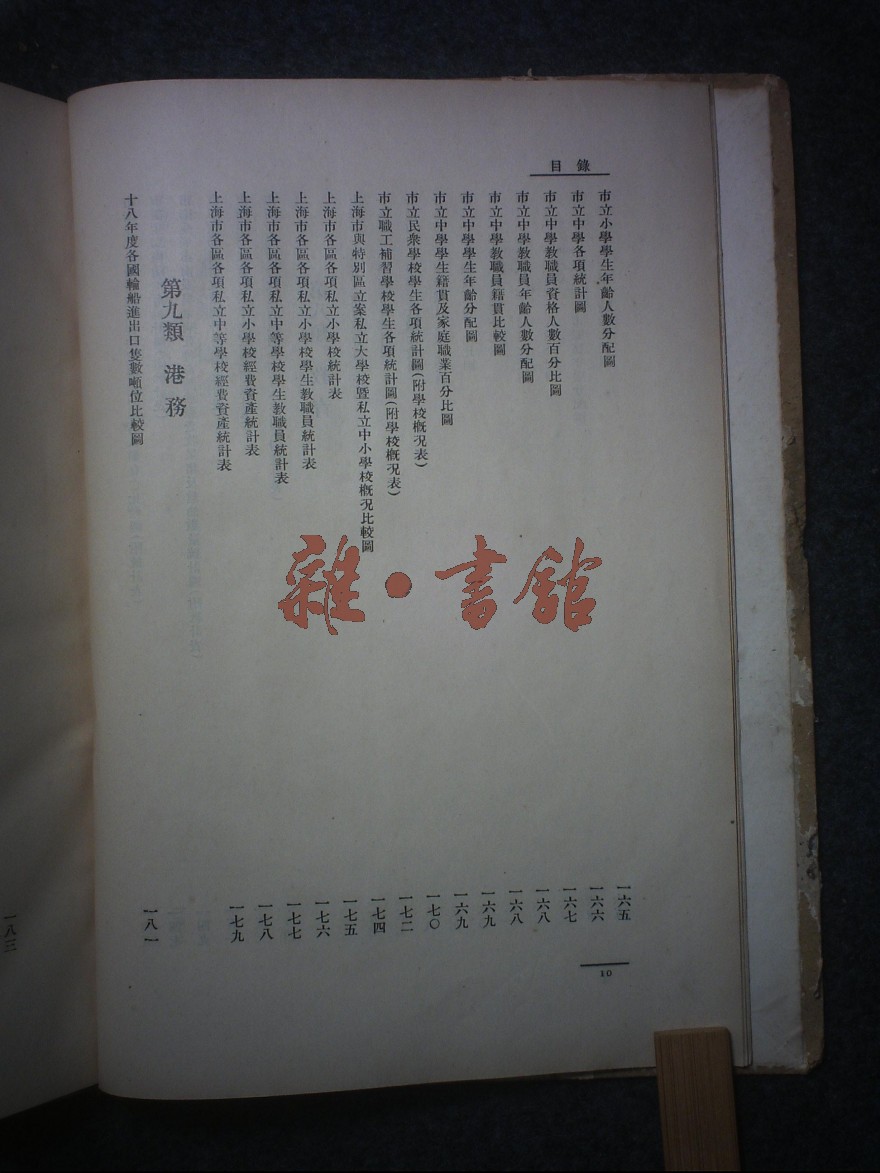 目錄
市立小學學生年齡人數分配圖 一六五
市立中學各項統計圖 一六六
市立中學教職員資格人數百分比圖 一六七
市立中學教職員年齡人數分配圖 一六八
市立中學教職員籍貫比較圖 一六八
市立中學學生年齡分配圖 一六九
市立中學學生籍貫及家庭職業百分比圖 一六九
市立民衆學校學生各項統計圖(附學校概况表) 一七〇
市立職工補習學校學生各項統計圖(附學校概况表) 一七二
上海市與特別區立案私立大學校暨私立中小學校概况比較圖 一七四
上海市各區各項私立小學校統計表 一七五
上海市各區各項私立小學校學生教職員統計表 一七六
上海市各區各項私立中等學校學生教職員統計表 一七七
上海市各區各項私立小學校經費資產統計表 一七八
上海市各區各項私立中等學校經費資產統計表 一七九
第九類 港務
十八年度各國輪船進出口隻數噸位比較圖 一八一
10
一八三
雜·書館